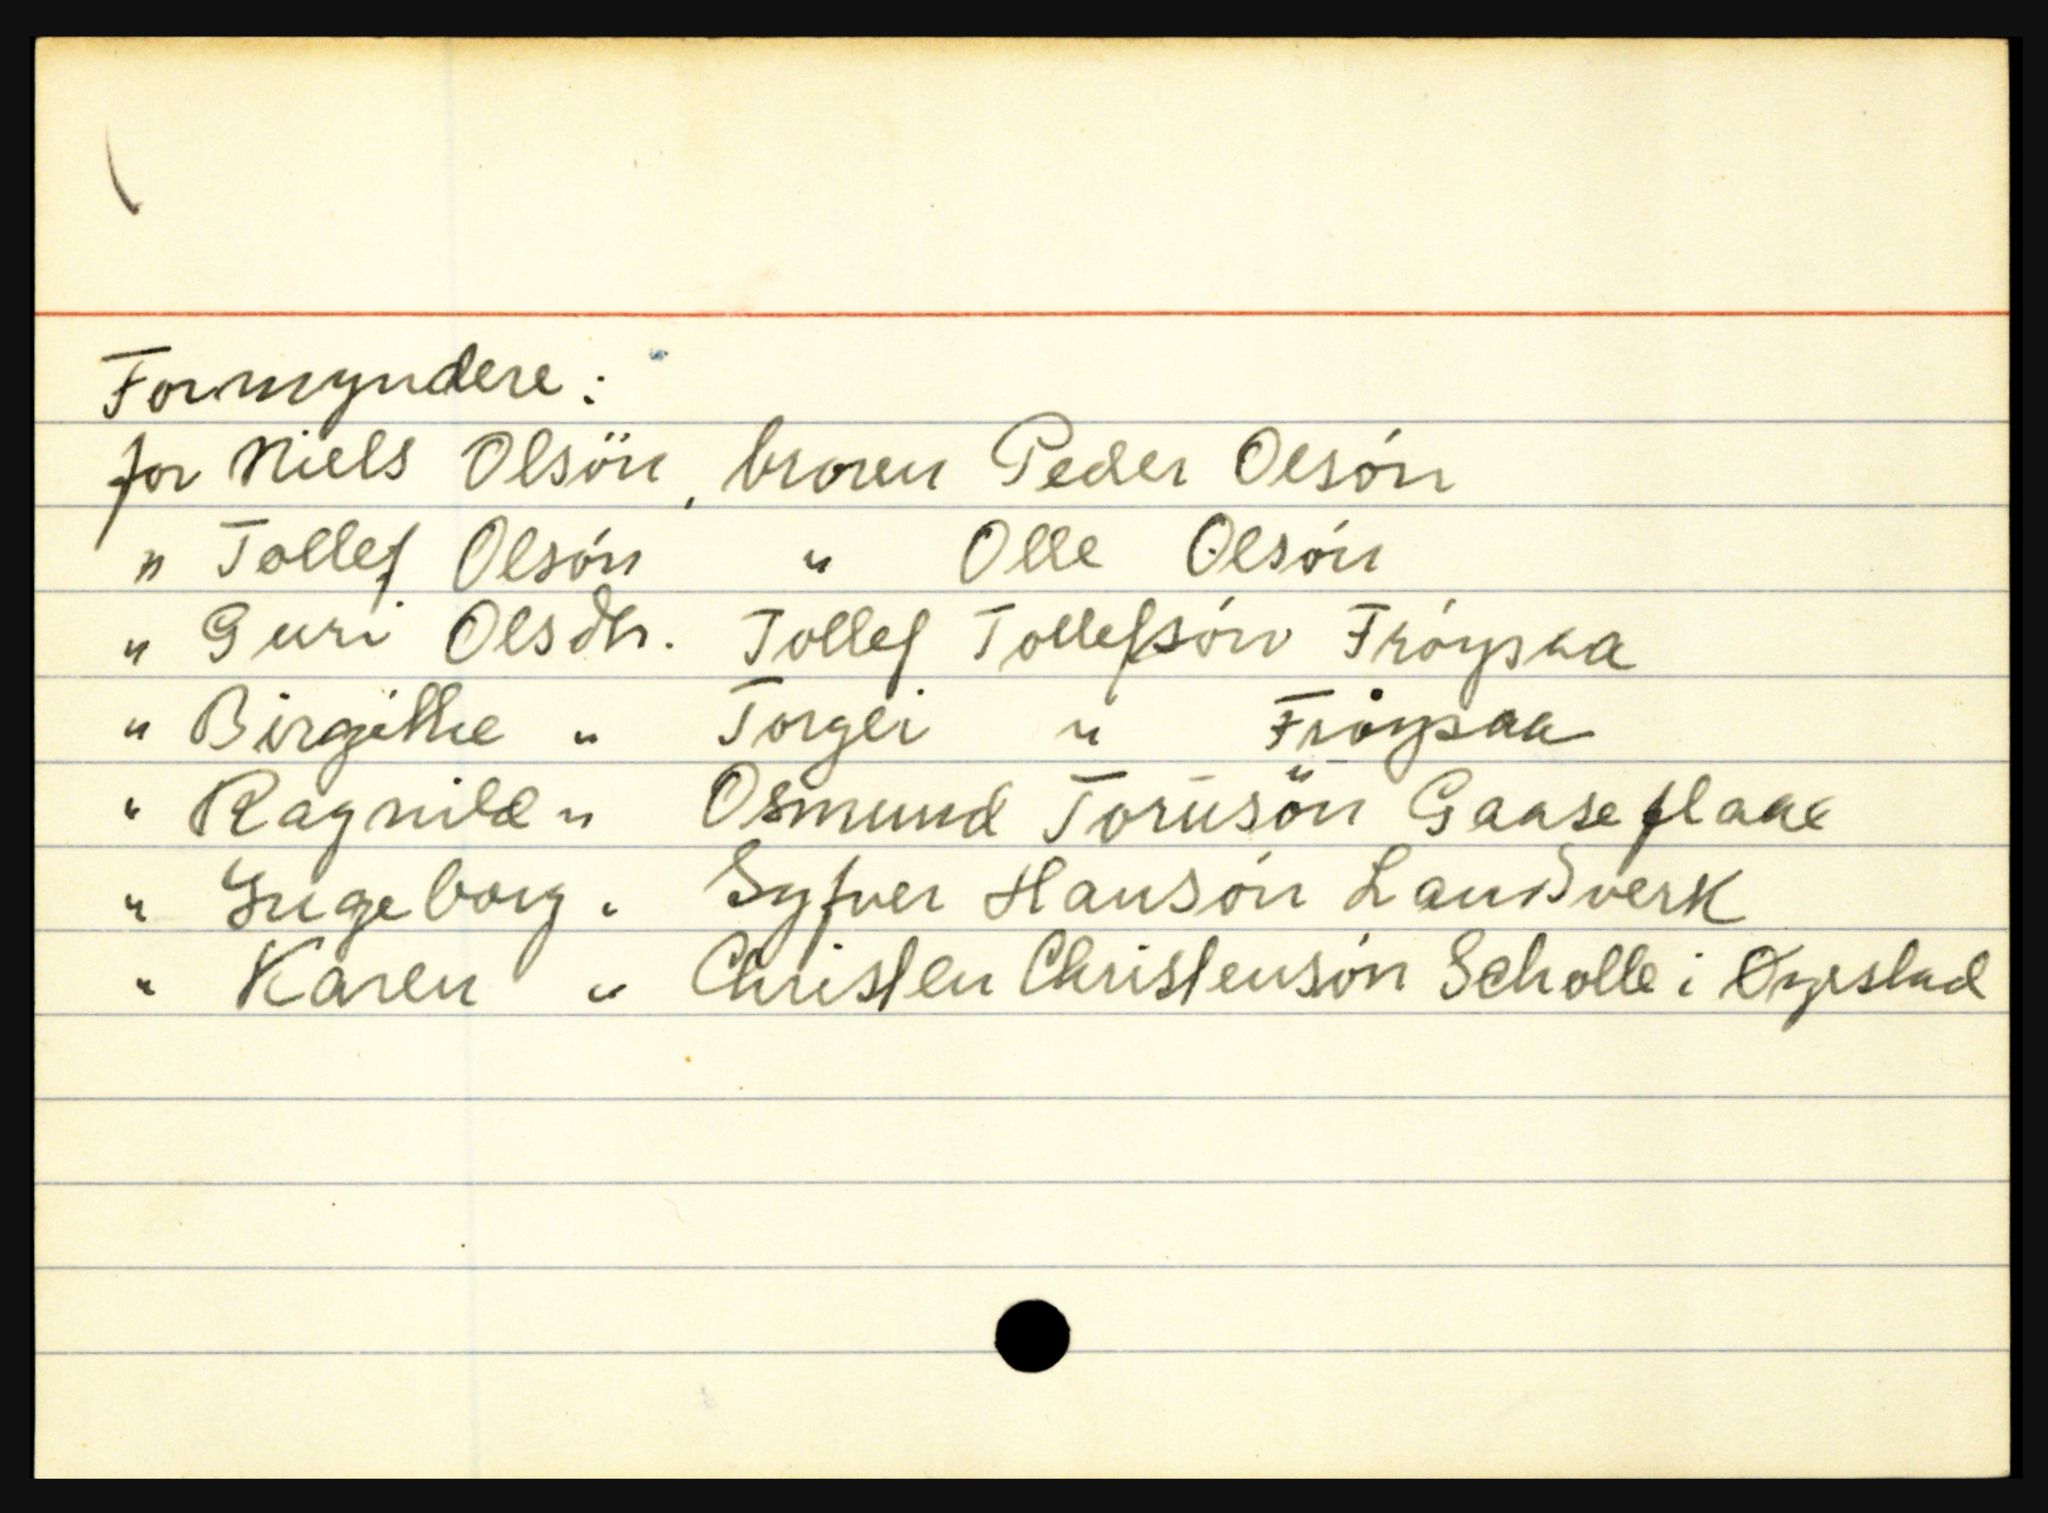 Formyndere:
for Niels Olsön, broren Peder Olsón
" Tollef Olsón " Olle Olsón
" Guri Olsdtr. Tollef Tollefsón Fróysaa
" Birgithe " Torgei " Fróysaa
" Ragnild " Osmund Torüsön Gaaseflaae
" Ingeborg " Syfver Hansón Landverk
" Karen " Christen Christensón Scholle i Øyestad